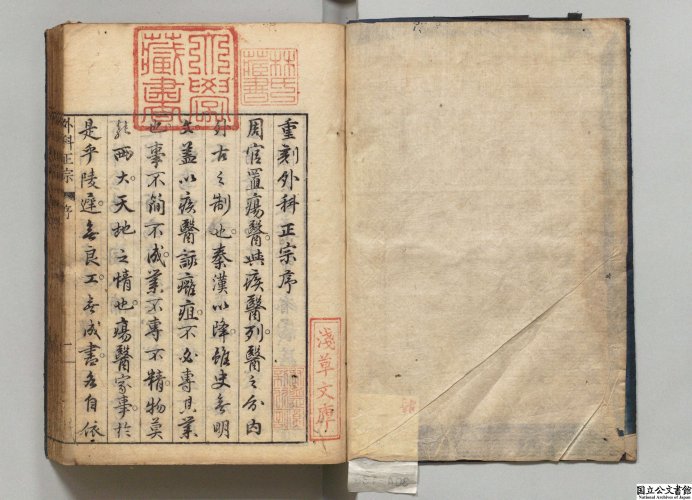 重刻外科正宗序
周官置瘍醫與疾醫列醫之分內
外古之制也秦漢以降雖史無明
文蓋以疾醫診癰疽不必專其業
也事不簡不成業不專不精物莫
能兩大天地之情也瘍醫家事於
是乎陵遲無良工無成書各自依
外科正宗 序 一
大學藏書
林氏藏書
淺草文庫
国立公文書館
National Archives of Japan